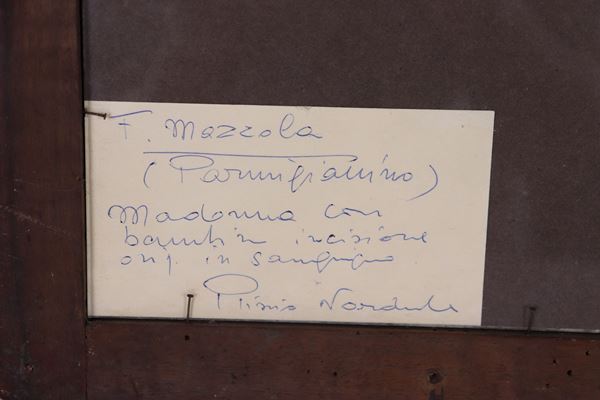 F. Mazzola
(Parmigianino)
Madonna con
bambin incisione
orig. in sanguigno
Plinio Nardecchia